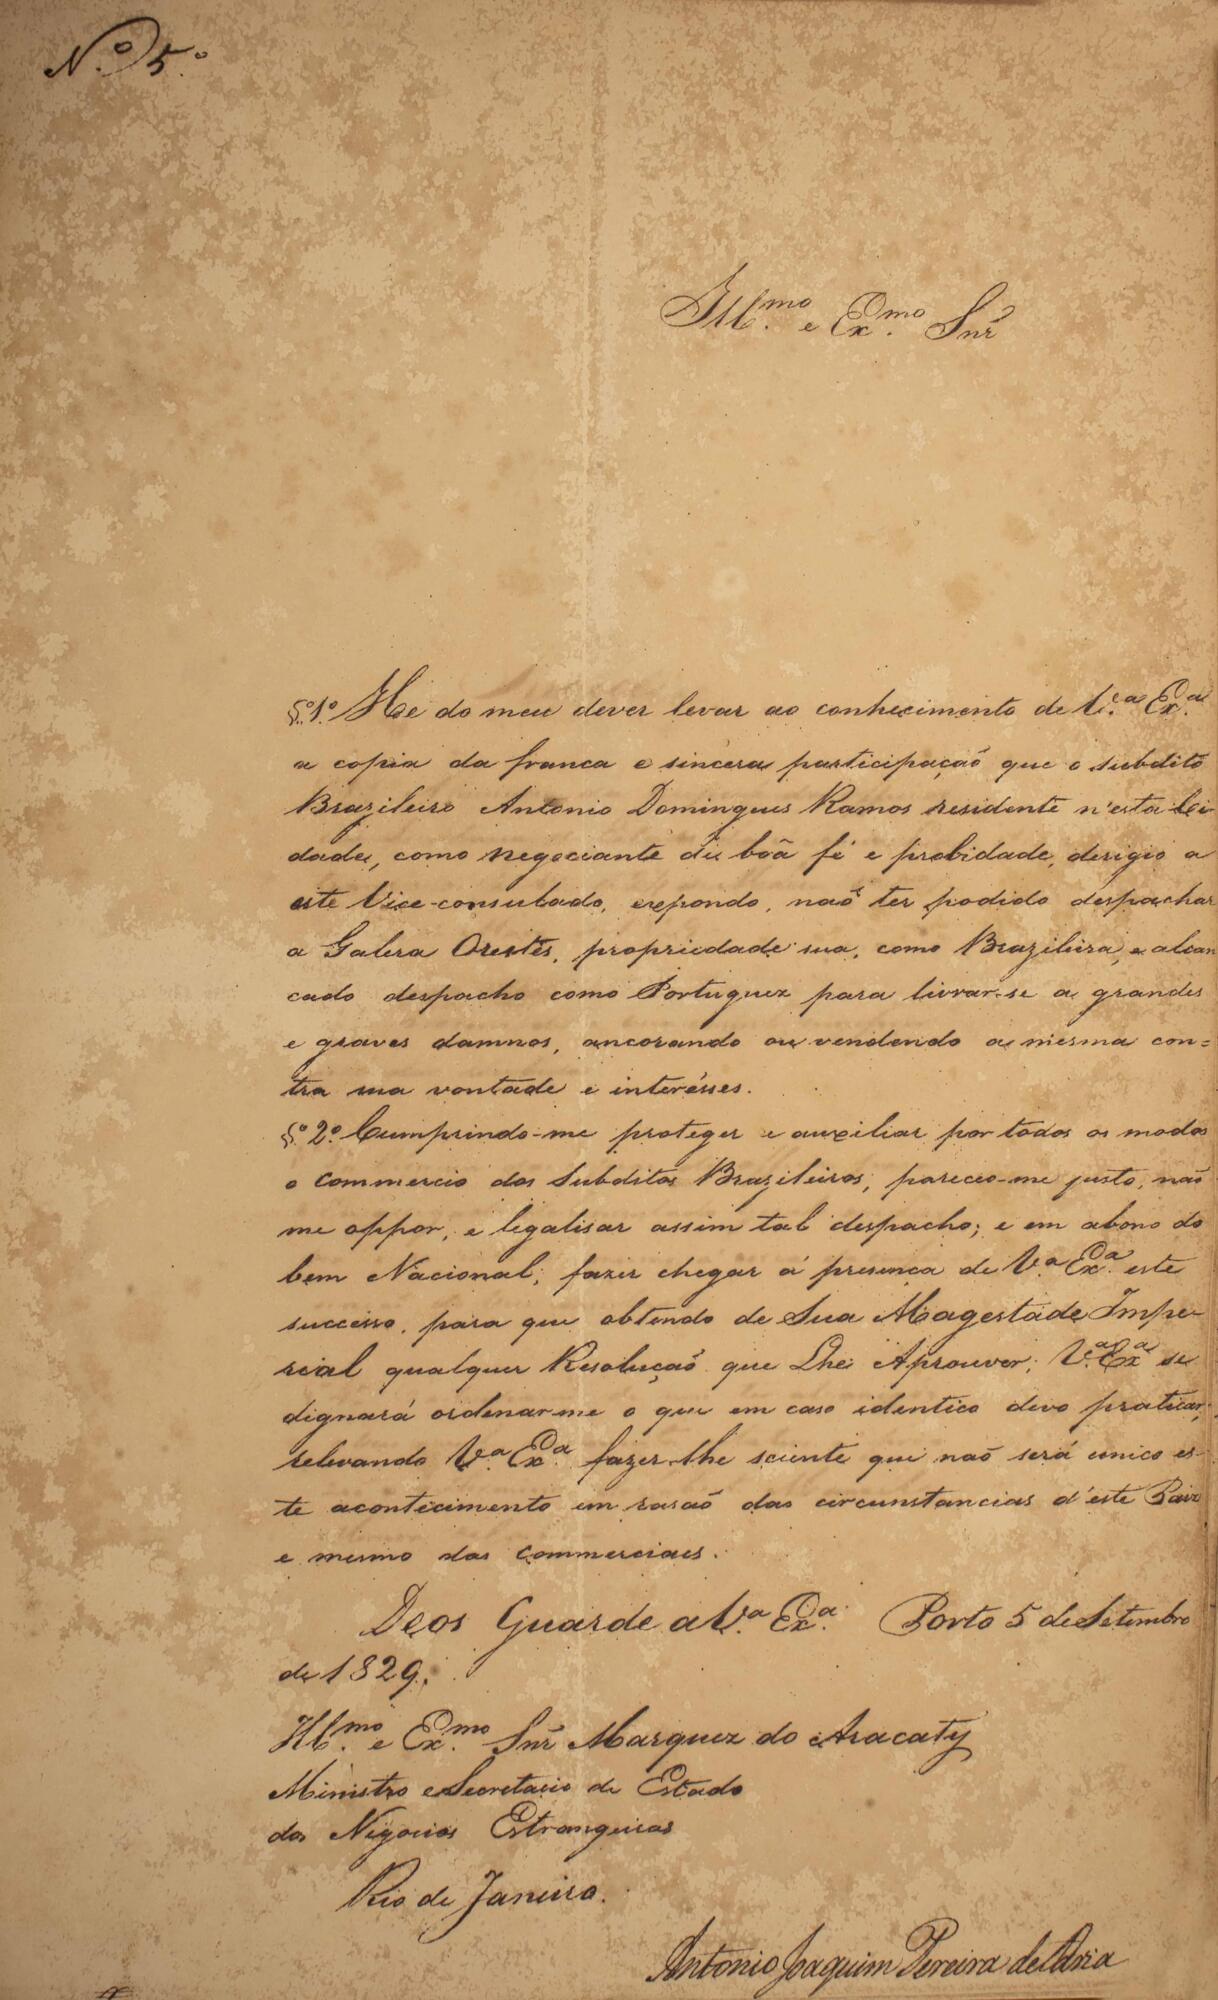 N.º 5.º
Ill.mo e Ex.mo Snr
§.º 1.º He do meu dever levar ao conhecimento de V.ª Ex.ª
a copia da franca e sincera participação que o subdito
Brazileiro Antonio Domingues Ramos residente n'esta Ci-
dade, como negociante de boã fé e probidade, derigio a
este Vice-consulado, expondo, naõ ter podido despachar
a Galera Orestes, propriedade sua, como Brazileira, e alcan
çado despacho como Portuguez para livrar-se a grandes
e graves damnos, ancorando ou vendendo a mesma con=
tra sua vontade e interésses.
§.º 2.º Cumprindo-me proteger e auxiliar por todos os modos
o commercio dos Subditos Brazileiros, pareceo-me justo, naõ
me oppor, e legalisar assim tal despacho; e em abono do
bem Nacional, fazer chegar á presença de V.ª Ex.ª este
successo, para que obtendo de Sua Magestade Impe-
rial qualquer Resoluçaõ que Lhe Aprouver, V.ª Ex.ª se
dignará ordenar-me o que em caso identico devo praticar;
relevando V.ª Ex.ª fazer-lhe sciente que naõ será unico es-
te acontecimento em rasaõ das circunstancias d'este Paiz
e mesmo das commerciaes.
Deos Guarde a V.ª Ex.ª Porto 5 de Setembro
de 1829.
Ill.mo e Ex.mo Snr Marquez do Aracaty
Ministro e Secretario de Estado
dos Negocios Estrangeiros
Rio de Janeiro.
Antonio Joaquim Pereira de